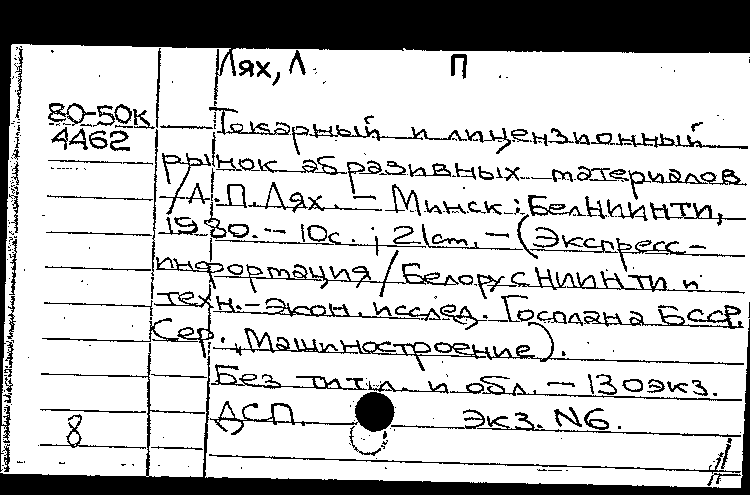 Лях, Л П
80-50к
4462
Токарный и лицензионный
рынок абразивных материалов
/Л.П.Лях. – Минск : БелНИИНТИ,
1980. – 10с. ; 21cm. – (Экспресс-
информация / Белорус НИИНТИ и
техн.-экон. исслед. Госплана БССР.
Сер., Машиностроение).
Без тит.л. и обл. – 130экз.
ДСП. экз. N6.
8